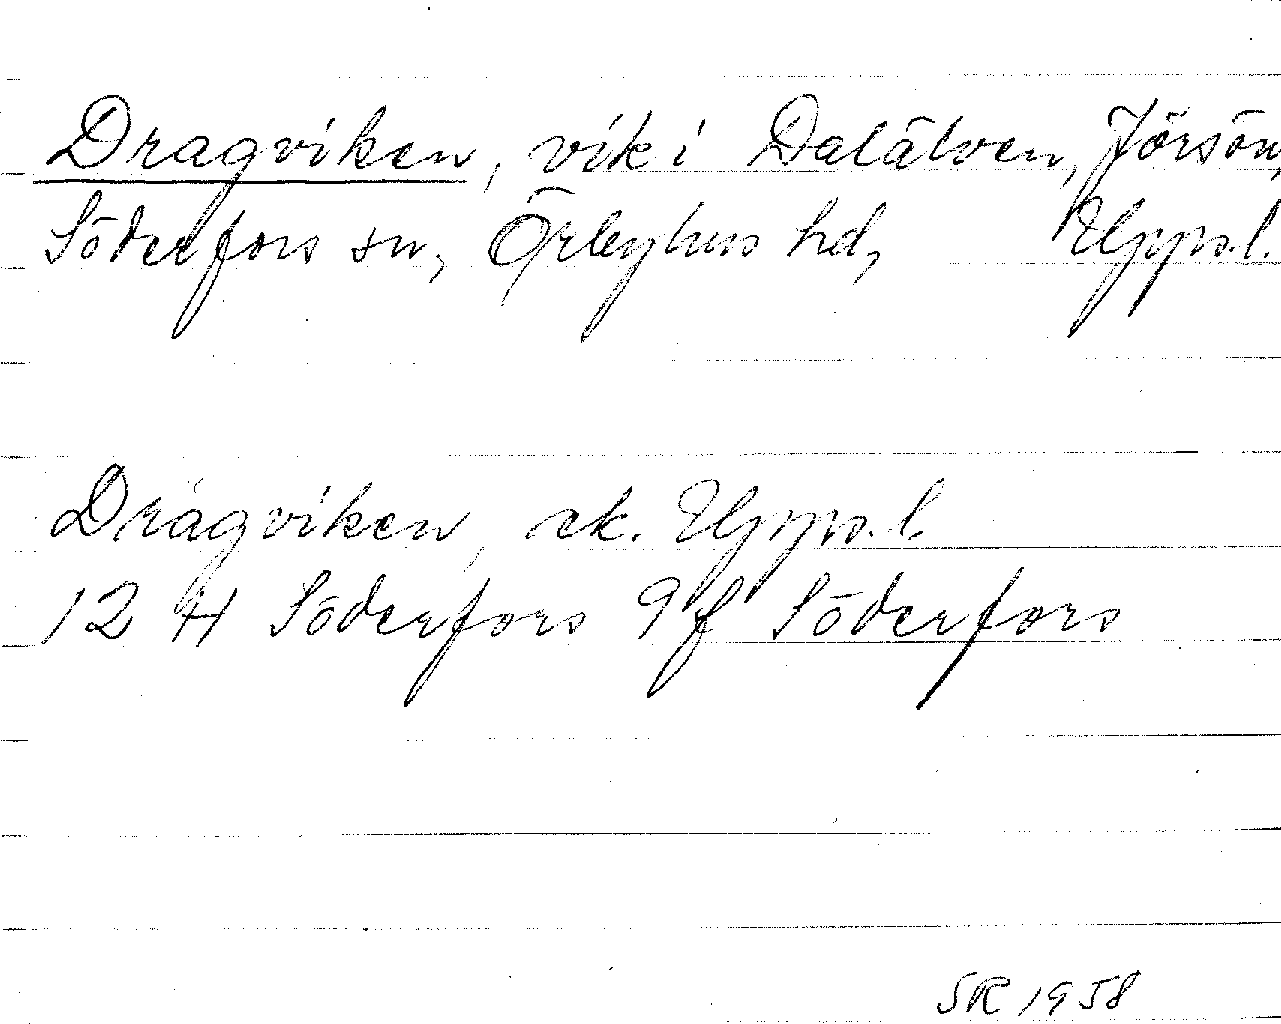 Dragviken, vik i Dalälven, Jörsön,
Söderfors sn, Örbyhus hd, Uppsl.
Drägviken, ek. Uppsl.
12 H Söderfors 9f Söderfors
SR 1958